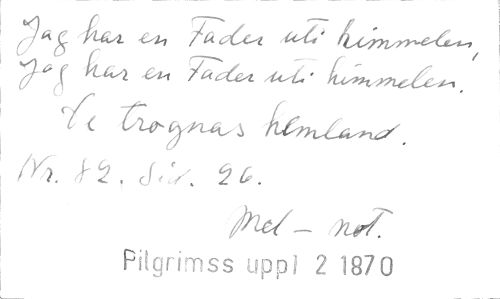 Jag har en Fader uti himmelen,
Jag har en Fader uti himmelen.
De trognas hemland.
Nr. 82. Sid. 26.
Mel - not.
Pilgrimss uppl 2 1870